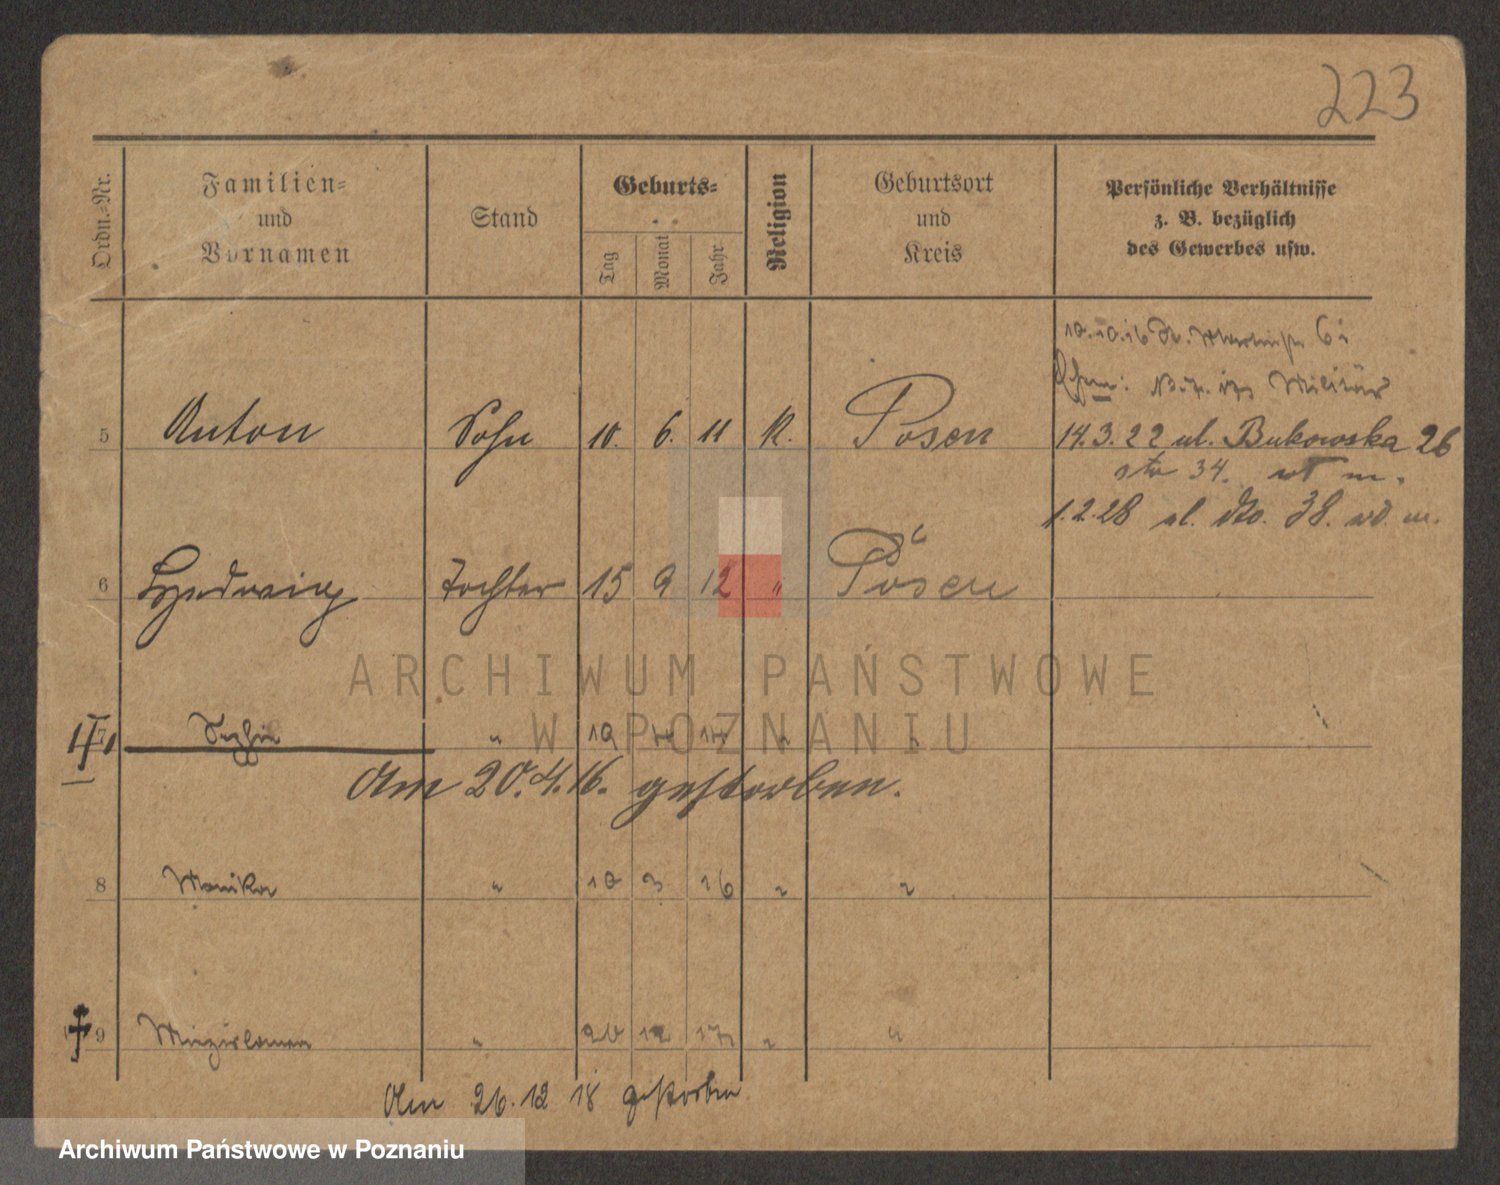 223
Ordn.-Nr.
Familien=
und
Vornamen
Stand
Geburts=
Tag
Monat
Jahr
Religion
Geburtsort
und
Kreis
Persönliche Verhältnisse
z. B. bezüglich
des Gewerbes usw.
10.10.16 6
Militär
5 Anton Sohn 10. 6. 11 K. Posen 14.3.22 ul. Bukowska 26
34. m.
1.2.28 ul. dto. 38. m.
6 Hedwig Tochter 15 9 12 " Posen
ARCHIWUM PAŃSTWOWE
7 " 19
W POZNANIU
Am 20.4.16. gestorben.
8 Monika " 10 3 16 " "
9 " 20 12 17 " "
Am 26.12 18 gestorben
Archiwum Państwowe w Poznaniu